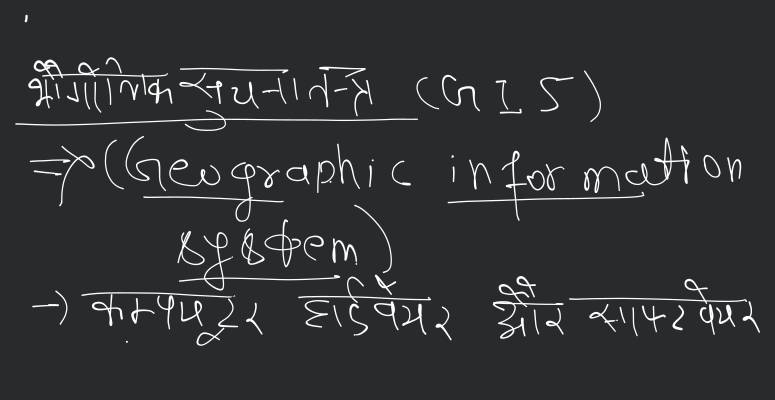 भौगोलिक सूचना तन्त्र (GIS)
⇒ (Geographic information
system)
→ कम्प्युटर हार्डवेयर और साफ्टवेयर